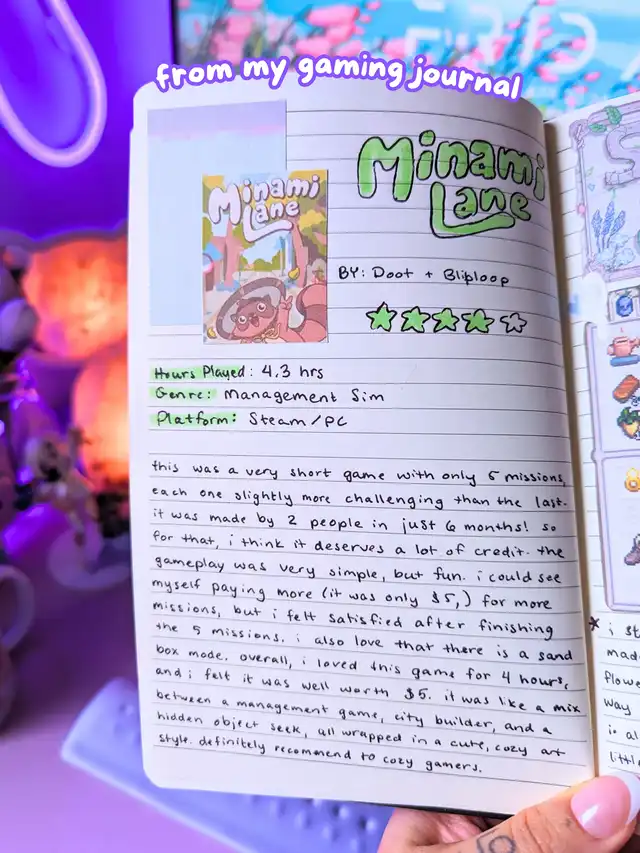 from my gaming journal
Minami
Lane
Minami
Lane
BY: Doot + Bliploop
Hours Played: 4.3 hrs
Genre: Management Sim
Platform: Steam/PC
this was a very short game with only 5 missions,
each one slightly more challenging than the last.
it was made by 2 people in just 6 months! so
for that, i think it deserves a lot of credit. the
gameplay was very simple, but fun. i could see
myself paying more (it was only $5,) for more
missions, but i felt satisfied after finishing
the 5 missions. i also love that there is a sand
box mode. overall, i loved this game for 4 hours,
and i felt it was well worth $5. it was like a mix
between a management game, city builder, and a
hidden object seek, all wrapped in a cute, cozy art
style. definitely recommend to cozy gamers.
* i st
mad
flowe
way
is al
littl